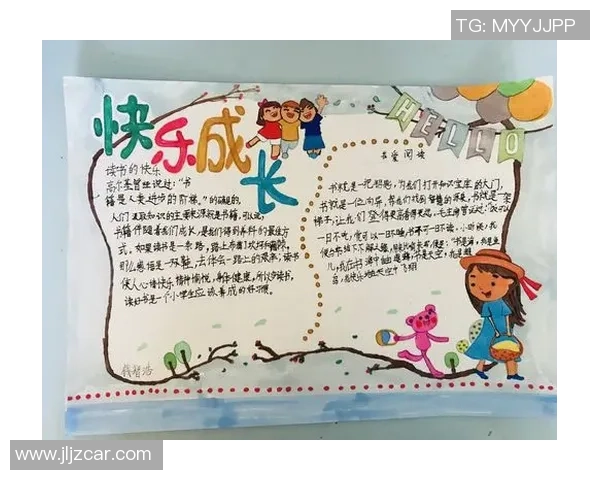 TG: MYYJJPP
快乐成长
HELLO
读书的快乐
高尔基曾经说过:“书
籍是人类进步的阶梯。”的确是的,
人们汲取知识的主要来源就是书籍,可以说,
书籍伴随着我们成长,是我们得到养料的最佳方
式。如果读书是一条路,路上布满了坎坷和崎岖,
那么思悟是一双鞋,去体会一路上的艰辛,读书
使人心情快乐,精神愉悦,身体健康,所以多读书,
读好书是一个小学生应该养成的好习惯。
书爱阅读
书就是一把钥匙,为我们打开知识宝库的大门,
书就是一位向导,带我们找到智慧的源泉,书就是一架
梯子,让我们登得更高看得更远,毛主席曾说过:“饭可以
一日不吃,觉可以一日不睡,书不可一日不读,
鸟,我快乐地在天空中飞翔
钱智浩
www.jljzcar.com